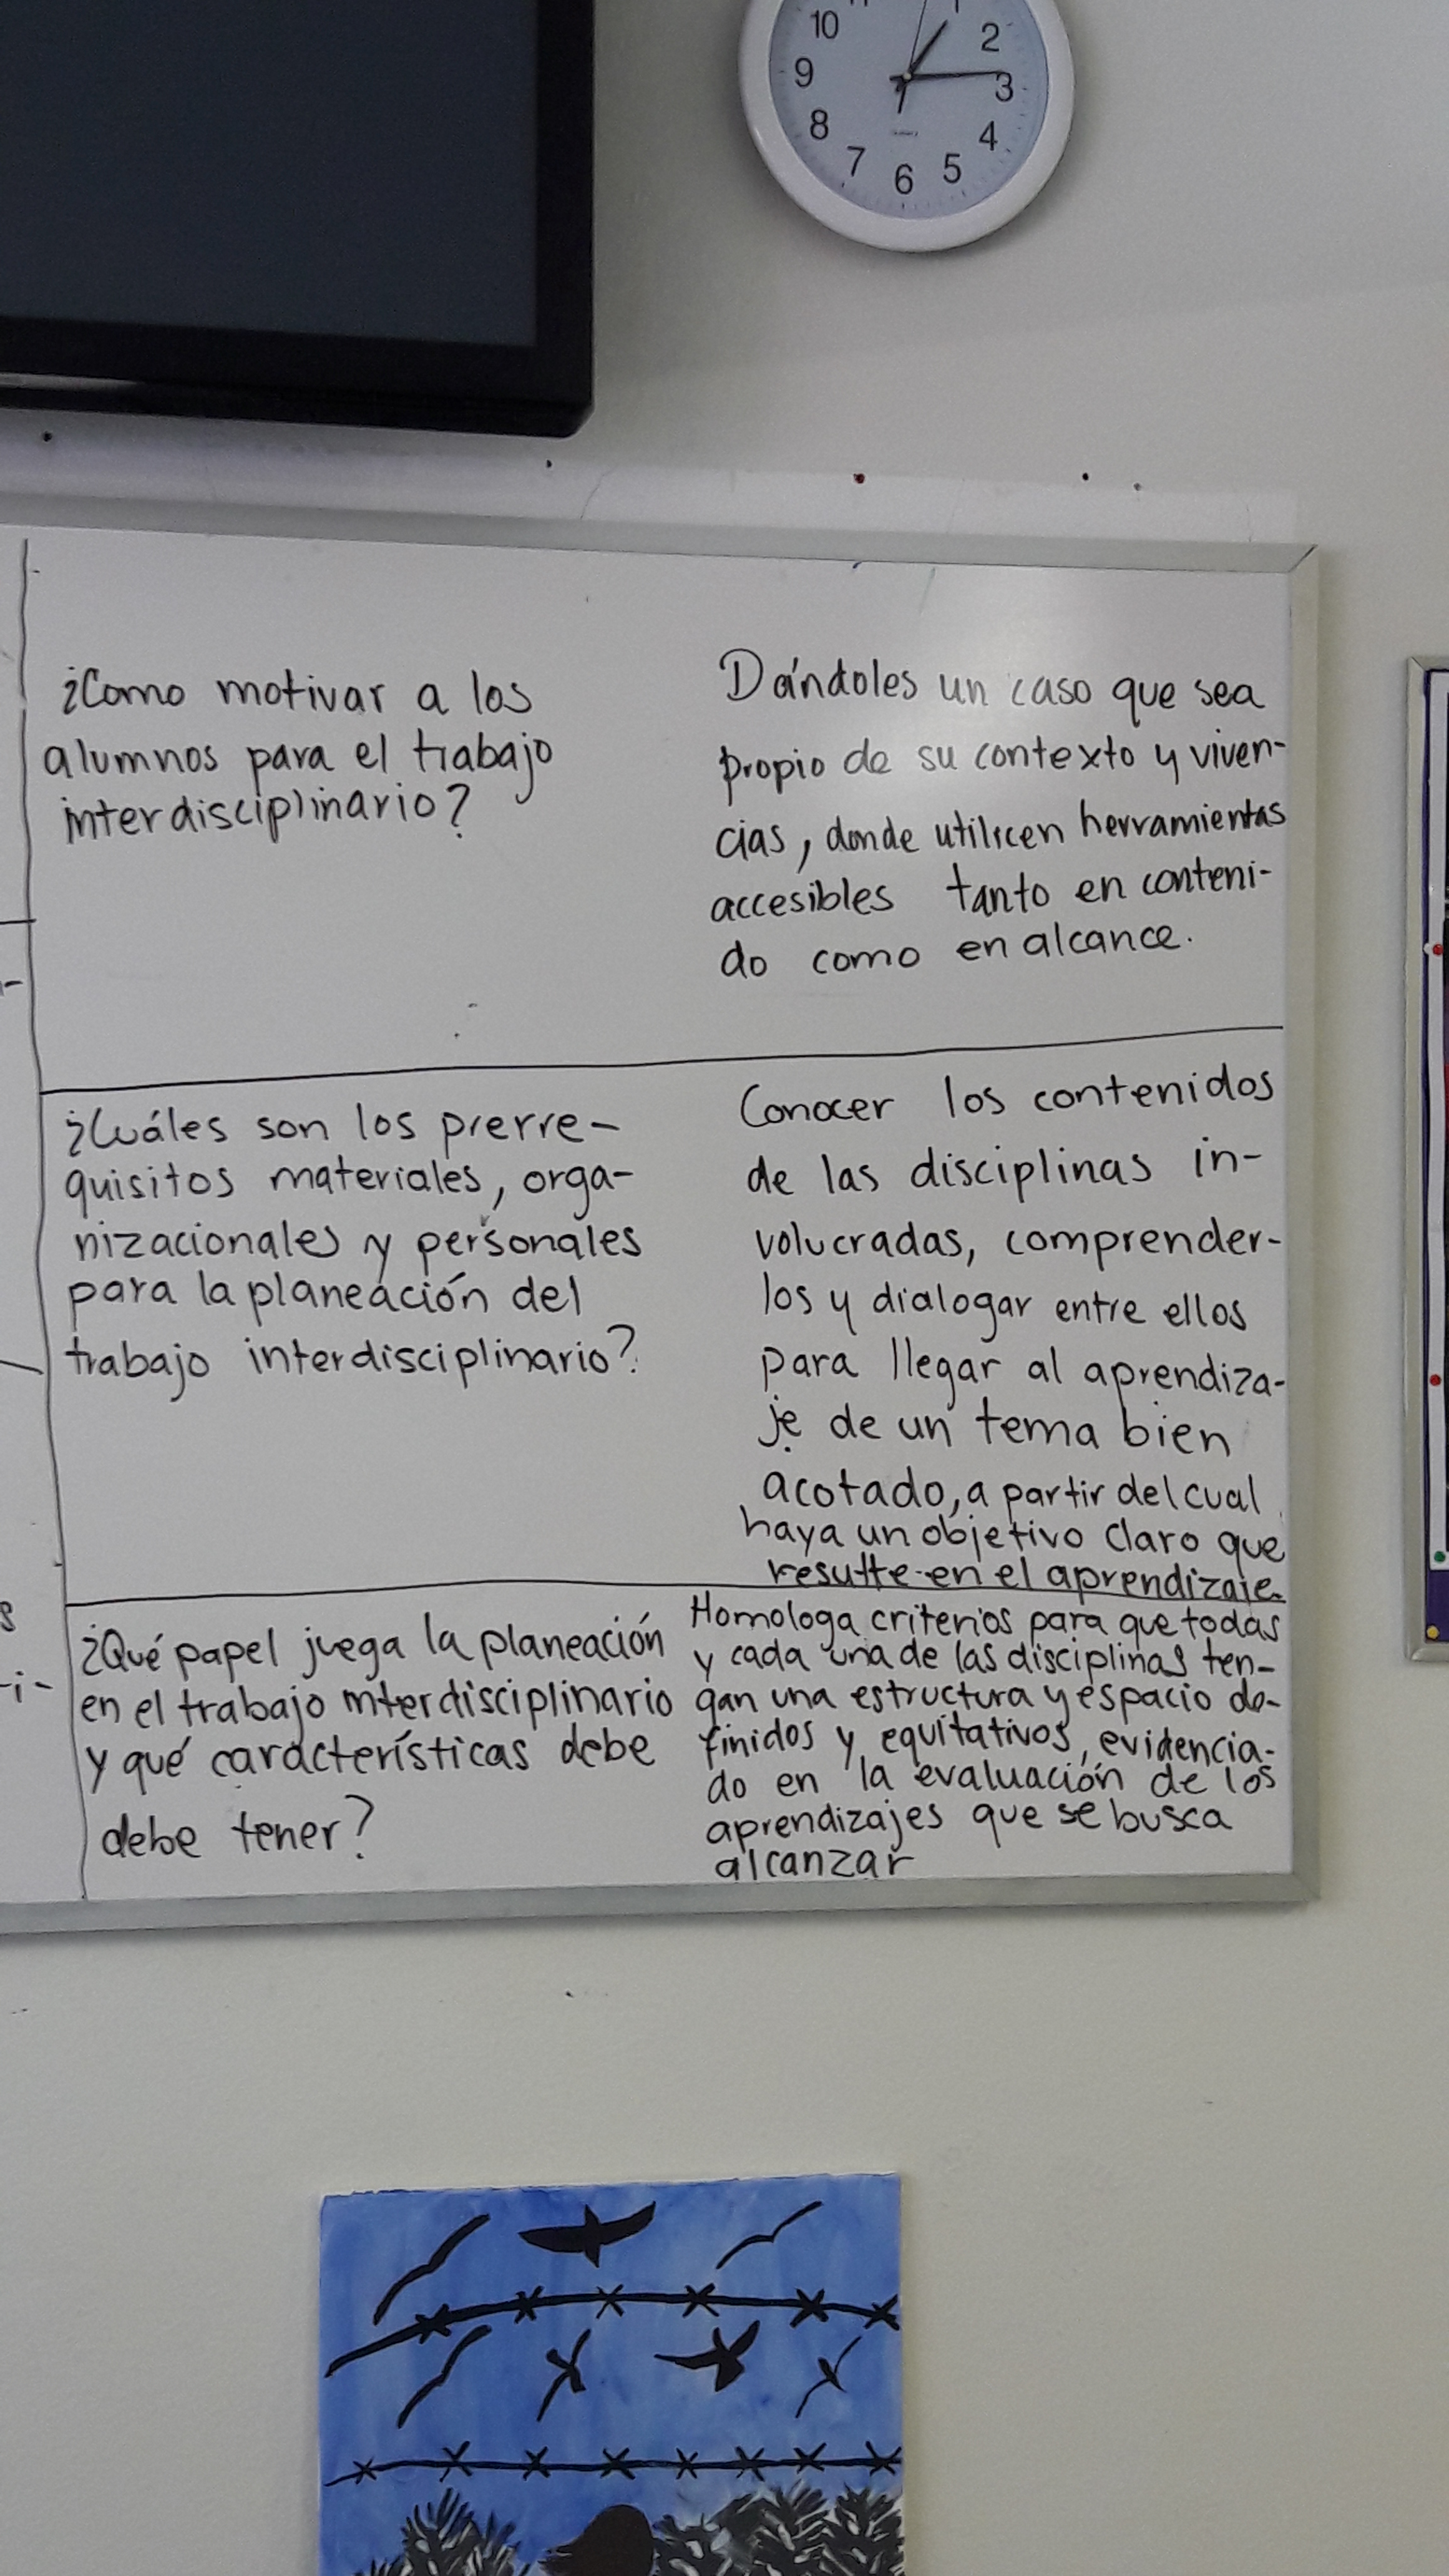 10
2
9
3
8
4
7
6
5
¿Como motivar a los
alumnos para el trabajo
interdisciplinario?
Dándoles un caso que sea
propio de su contexto y viven-
cias, donde utilicen herramientas
accesibles tanto en conteni-
do como en alcance.
¿Cuáles son los prerre-
quisitos materiales, orga-
nizacionales y personales
para la planeación del
trabajo interdisciplinario?
Conocer los contenidos
de las disciplinas in-
volucradas, comprender-
los y dialogar entre ellos
para llegar al aprendiza-
je de un tema bien
acotado, a partir del cual
haya un objetivo claro que
resulte en el aprendizaje.
¿Qué papel juega la planeación
en el trabajo interdisciplinario
y qué características debe
debe tener?
Homologa criterios para que todas
y cada una de las disciplinas ten-
gan una estructura y espacio de-
finidos y equitativos, evidencia-
do en la evaluación de los
aprendizajes que se busca
alcanzar